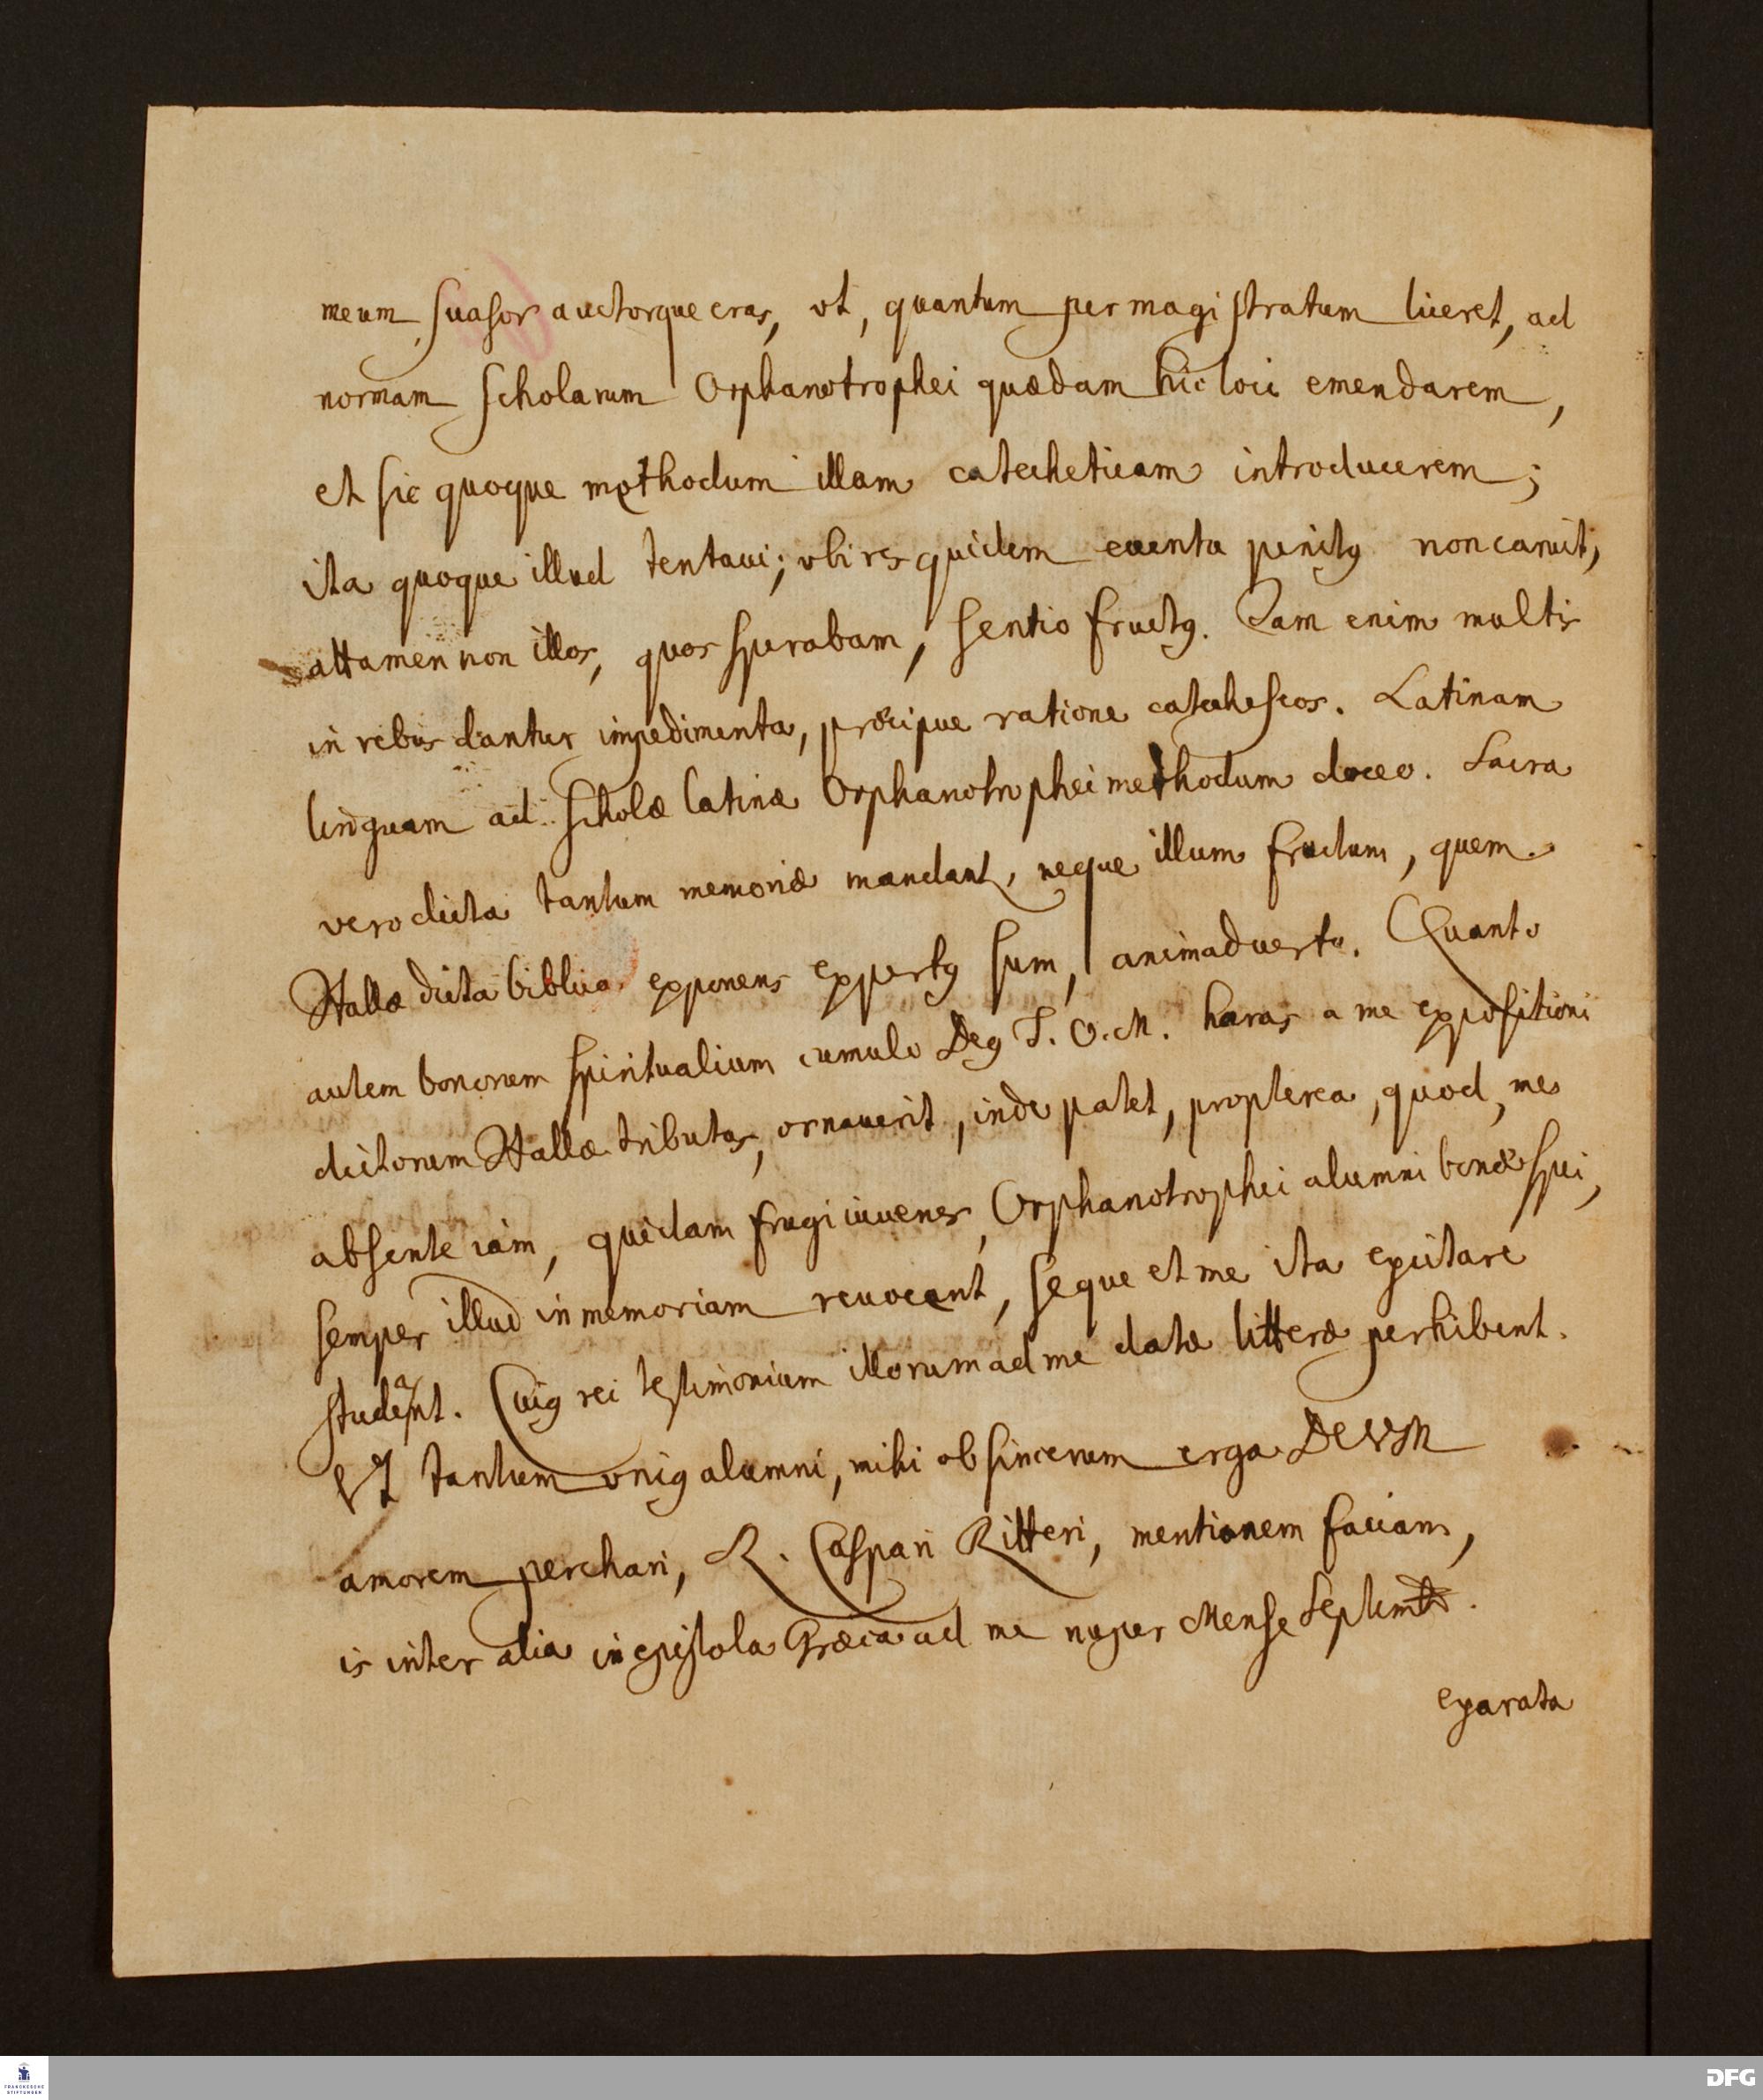 meum, suasor auctorque eras, vt, quantum per magistratum liceret, ad
normam scholarum Orphanotrophei quædam hic loci emendarem,
et sic quoque methodum illam catecheticam introducerem;
ita quoque illud tentaui; vbi res quidem euentu penitꝯ non caruit,
attamen non illos, quos sperabam, sentio fructꝯ. Tam enim multis
in rebus dantur impedimenta, præcipue ratione catecheseos. Latinam
linguam ad scholæ latinæ Orphanotrophei methodum doceo. Sacra
vero dicta tantum memoriæ mandant, neque illum fructum, quem
Hallæ dicta biblica exponens expertꝯ sum, animaduerto. Quanto
autem bonorum spiritualium cumulo Deꝯ T. O. M. horas a me expositioni
dictorum Hallæ tributas, ornauerit, inde patet, propterea, quod, me
absente iam, quidam frugi iuuenes, Orphanotrophei alumni bonæ spei,
semper illud in memoriam reuocent, seque et me ita excitare
studeant. Cuiꝯ rei testimonium illorum ad me datæ litteræ perhibent.
Vt tantum vniꝯ alumni, mihi ob sincerum erga DEVM
amorem perchari, R. Caspari Ritteri, mentionem faciam,
is inter alia in epistola Græca ad me nuper Mense Septembr.
exarata
FRANCKESCHE
STIFTUNGEN
DFG